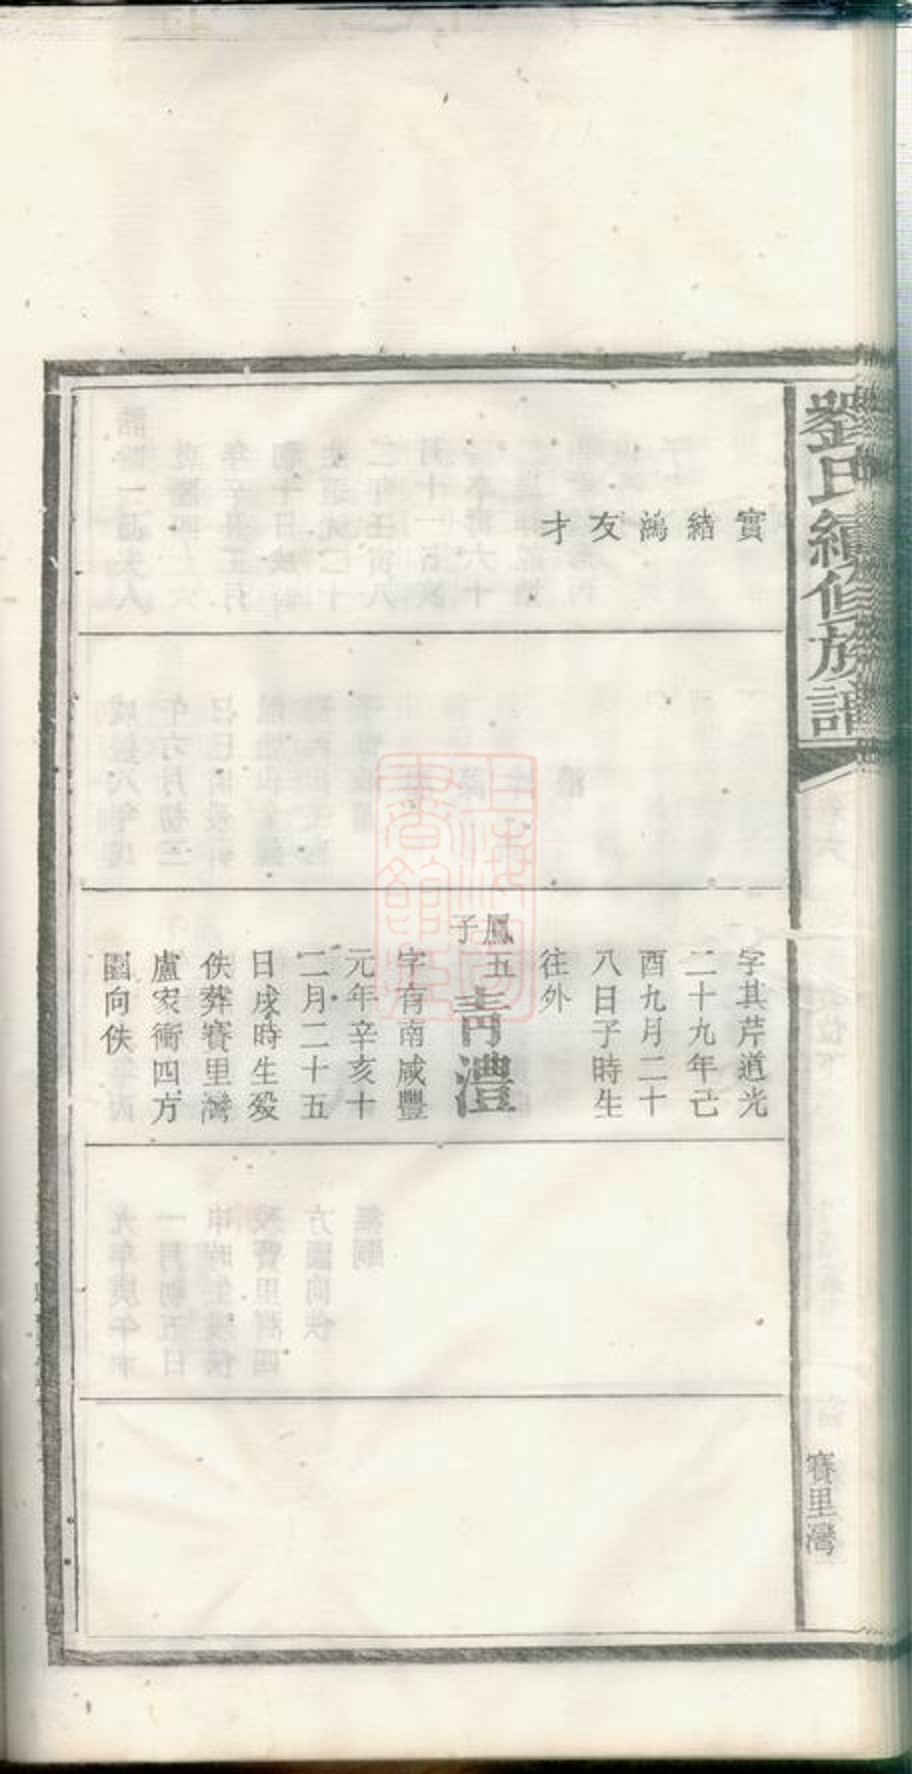 劉氏續修族譜
賽里灣
實
結
鴻
友
才
字其芹道光
二十九年己
酉九月二十
八日子時生
往外
鳳五子
青澧
字有南咸豐
元年辛亥十
二月二十五
日戌時生殁
佚葬賽里灣
盧家衝四方
圍向佚